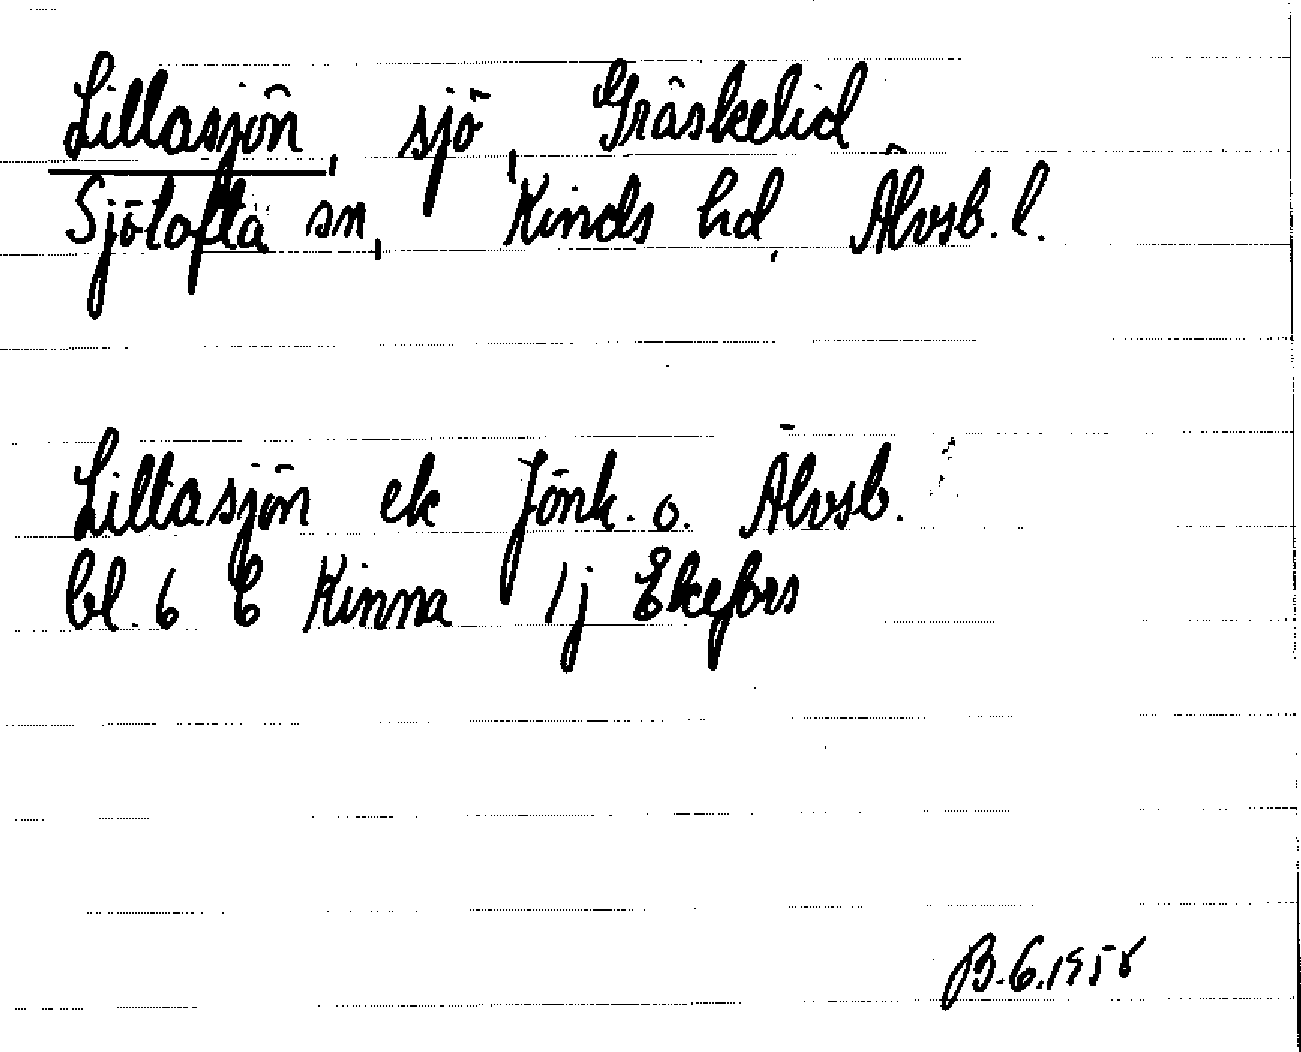 Lillasjön, sjö, Gräskelid
Sjötofta sn, Kinds hd, Älvsb. l.
Lillasjön ek Jönk. o. Älvsb.
bl. 6 C Kinna 1j Ekefors
B.G.1958